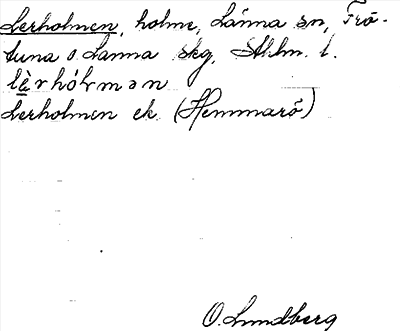 Lerholmen, holme, Länna sn, Frö-
tuna o. Länna skg, Sthlm. l.
lèrhólmən
Lerholmen ek. (Hemmarö)
O. Lundberg